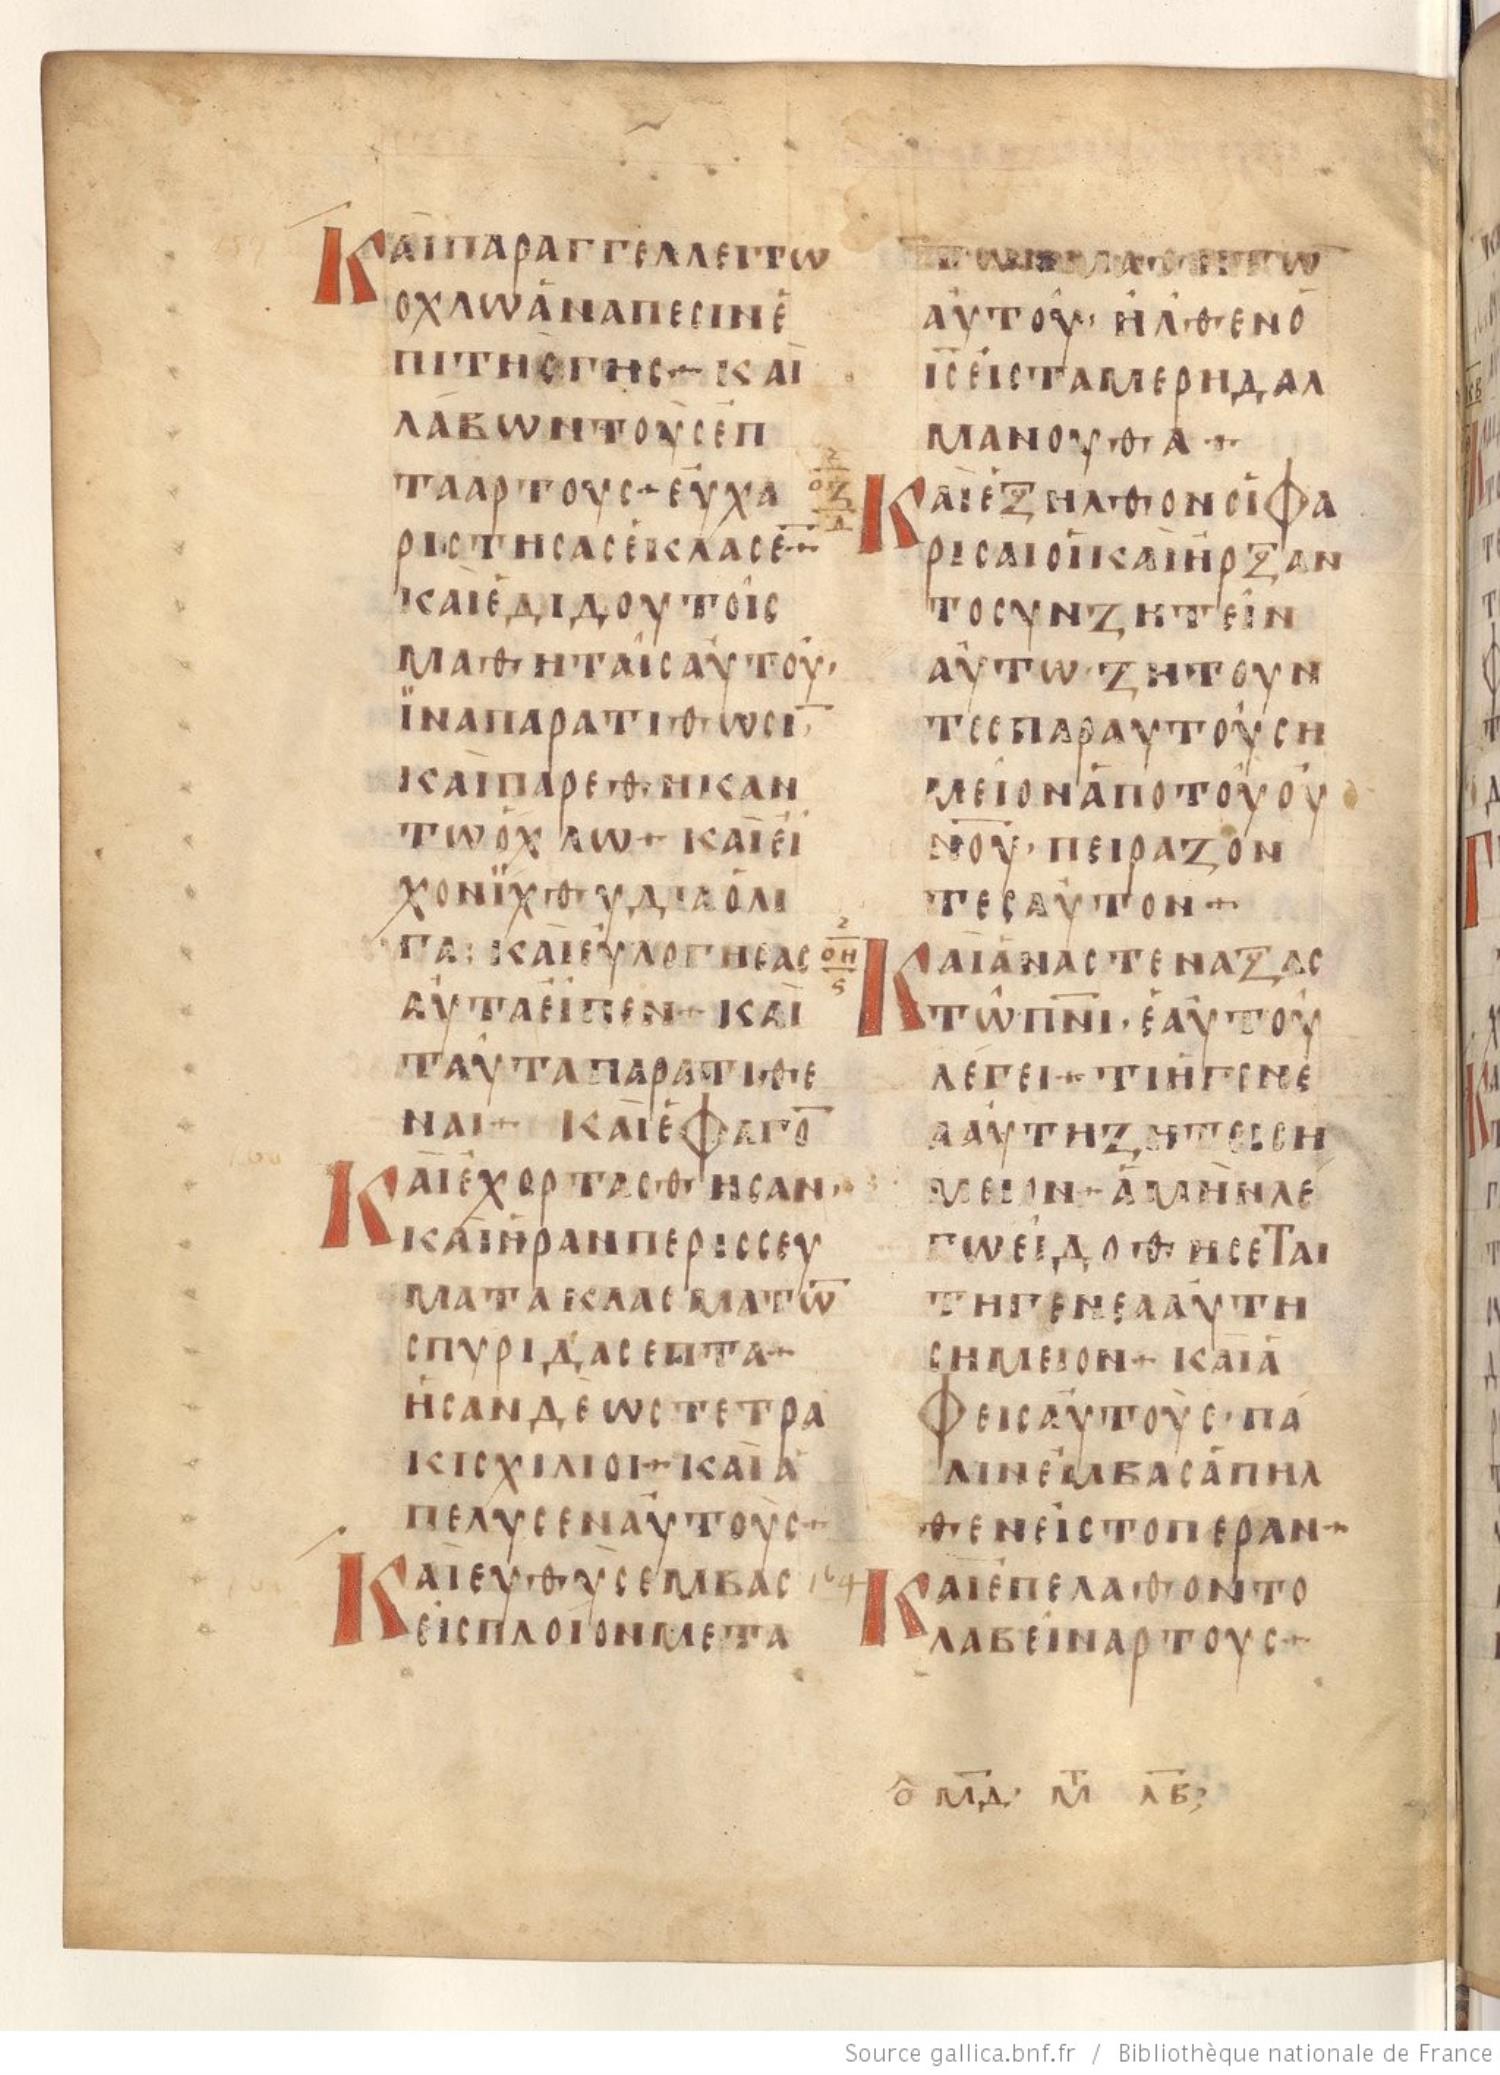 ΚΑΙΠΑΡΑΓΓΕΛΛΕΙΤΩ
ΟΧΛΩΑΝΑΠΕΣΙΝΕ
ΠΙΤΗΣΓΗΣ+ΚΑΙ
ΛΑΒΩΝΤΟΥΣΕΠ
ΤΑΑΡΤΟΥΣ+ΕΥΧΑ
ΡΙΣΤΗΣΑΣΕΚΛΑΣΕ̅+
ΚΑΙΕΔΙΔΟΥΤΟΙΣ
ΜΑΘΗΤΑΙΣΑΥΤΟΥ·
ΪΝΑΠΑΡΑΤΙΘΩΣΙ̅·
ΚΑΙΠΑΡΕΘΗΚΑΝ
ΤΩΟΧΛΩ+ΚΑΙΕΙ
ΧΟΝΪΧΘΥΔΙΑΟΛΙ
ΓΑ:ΚΑΙΕΥΛΟΓΗΣΑΣ
ΑΥΤΑΕΙΠΕΝ+ΚΑΙ
ΤΑΥΤΑΠΑΡΑΤΙΘΕ
ΝΑΙ+ΚΑΙΕΦΑΓΟ̅
ΚΑΙΕΧΟΡΤΑΣΘΗΣΑΝ·
ΚΑΙΗΡΑΝΠΕΡΙΣΣΕΥ
ΜΑΤΑΚΛΑΣΜΑΤΩ̅
ΣΠΥΡΙΔΑΣΕΠΤΑ+
ΗΣΑΝΔΕΩΣΤΕΤΡΑ
ΚΙΣΧΙΛΙΟΙ+ΚΑΙΑ
ΠΕΛΥΣΕΝΑΥΤΟΥΣ+
ΚΑΙΕΥΘΥΣΕΜΒΑΣ
ΕΙΣΠΛΟΙΟΝΜΕΤΑ
ΤΩΝΜΑΘΗΤΩ̅
ΑΥΤΟΥ·ΗΛΘΕΝΟ
Ι̅Σ̅ΕΙΣΤΑΜΕΡΗΔΑΛ
ΜΑΝΟΥΘΑ+
ΟΖ
Δ
ΚΑΙΕΞΗΛΘΟΝΟΙΦΑ
ΡΙΣΑΙΟΙΚΑΙΗΡΞΑΝ
ΤΟΣΥΝΖΗΤΕΙΝ
ΑΥΤΩ·ΖΗΤΟΥΝ
ΤΕΣΠΑΡΑΥΤΟΥΣΗ
ΜΕΙΟΝΑΠΟΤΟΥΟΥ
Ν̅Ο̅Υ̅·ΠΕΙΡΑΖΟΝ
ΤΕΣΑΥΤΟΝ+
ΟΗ
Ϛ
ΚΑΙΑΝΑΣΤΕΝΑΞΑΣ
ΤΩΠ̅Ν̅Ι̅·ΕΑΥΤΟΥ
ΛΕΓΕΙ+ΤΙΗΓΕΝΕ
ΑΑΥΤΗΖΗΤΕΙΣΗ
ΜΕΙΟΝ+ΑΜΗΝΛΕ
ΓΩΕΙΔΟΘΗΣΕΤΑΙ
ΤΗΓΕΝΕΑΑΥΤΗ
ΣΗΜΕΙΟΝ+ΚΑΙΑ
ΦΕΙΣΑΥΤΟΥΣ·ΠΑ
ΛΙΝΕΜΒΑΣΑΠΗΛ
ΘΕΝΕΙΣΤΟΠΕΡΑΝ+
164
ΚΑΙΕΠΕΛΑΘΟΝΤΟ
ΛΑΒΕΙΝΑΡΤΟΥΣ+
Ο Μ̅Δ̅· Μ Λ̅Β̅;
Source gallica.bnf.fr / Bibliothèque nationale de France